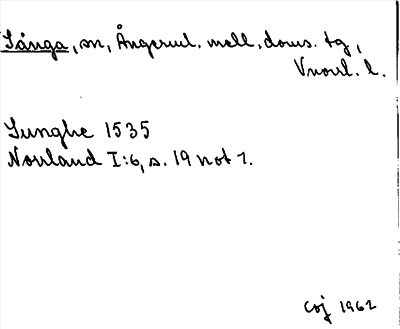 Sånga, sn, Ångerml. mell. doms. tg,
Vnorrl. l.
Sunghe 1535
Norrland I:6, s. 19 not 1.
CoJ 1962